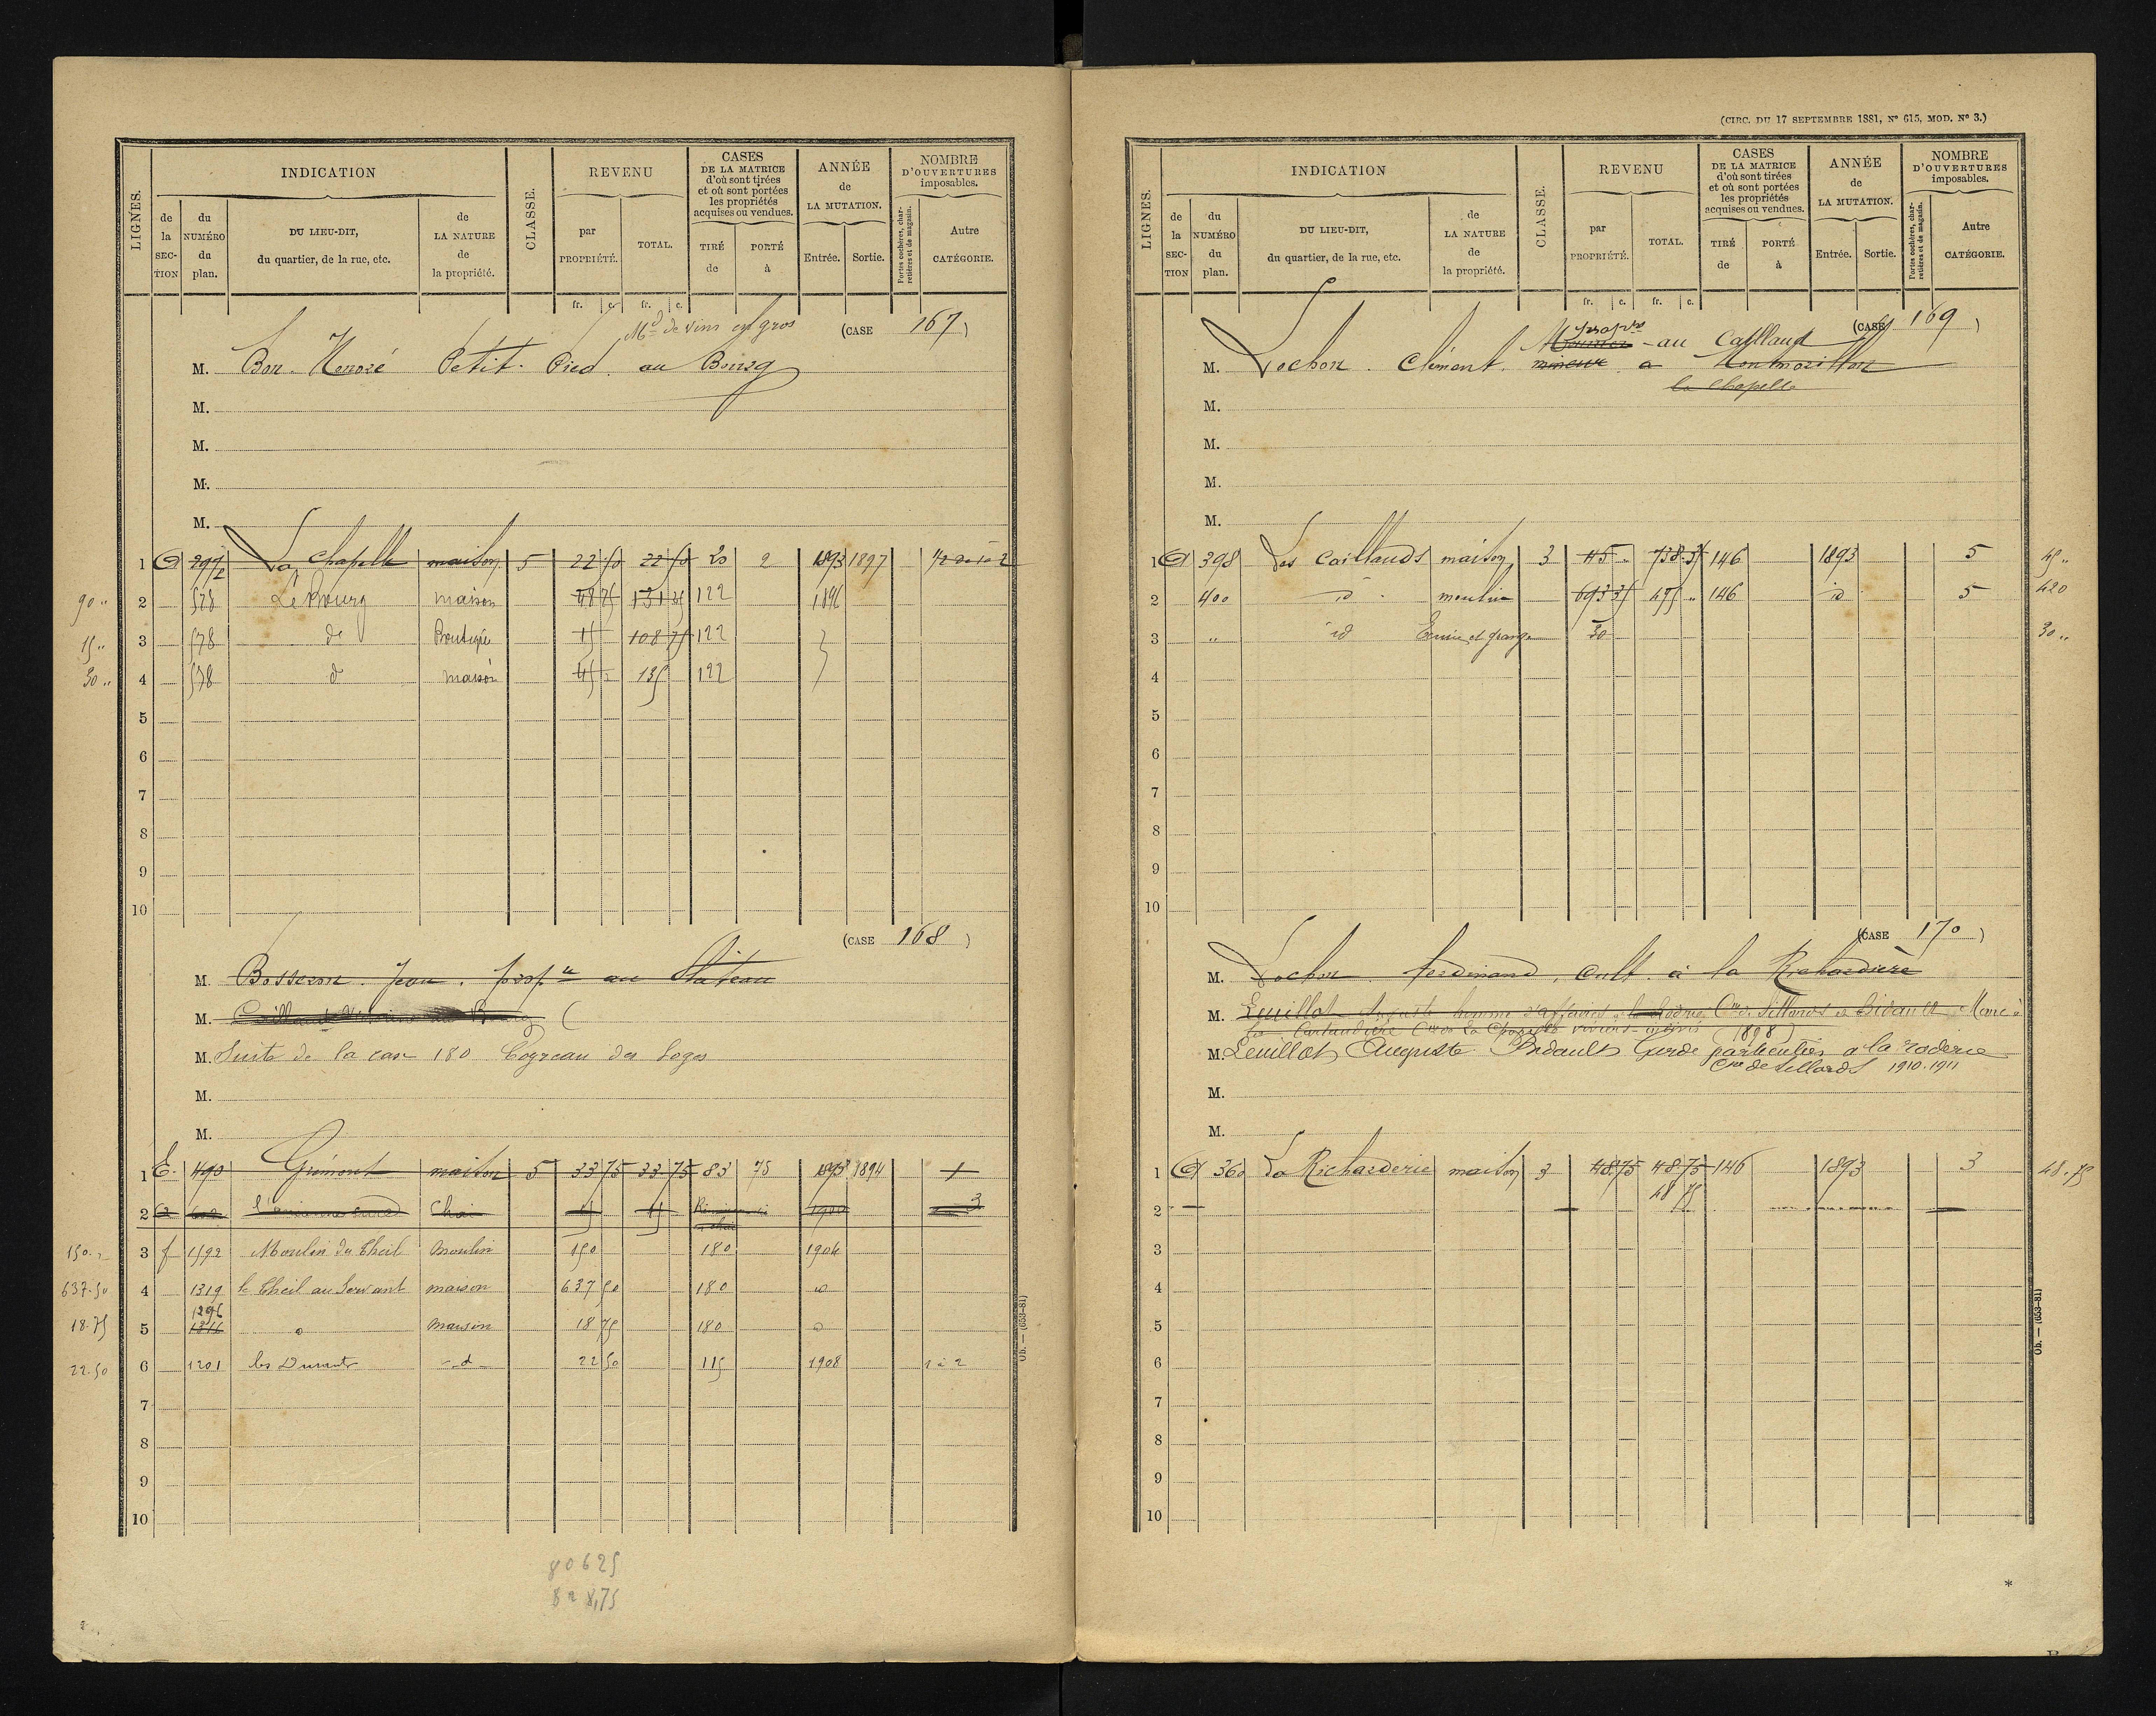 LIGNES. INDICATION CLASSE. REVENU CASES DE LA MATRICE d'où sont tirées et où sont portées les propriétés acquises ou vendues. ANNÉE de LA MUTATION. NOMBRE D'OUVERTURES imposables.
de la SECTION du NUMÉRO du plan. DU LIEU-DIT, du quartier, de la rue, etc. de LA NATURE de la propriété. par PROPRIÉTÉ. TOTAL. TIRÉ de PORTÉ à Entrée. Sortie. Portes cochères, charretières et de magasin. Autre CATÉGORIE.
fr. c. fr. c.
Md de vins en gros (CASE 167)
M. Bon Honoré Petit Pied au Bourg
M.
M.
M.
M.
1 297/2 La Chapelle maison 5 22 50 22 50 20 2 1893 1897
90 " 2 578 Le Bourg maison 48 75 131 25 122 1896
15 " 3 578 d° Boutique 15 108 75 122
30 " 4 578 d° maison 45 135 122
5
6
7
8
9
10
(CASE 168)
M. Bosseron Jean prop.re au Chateau
M.
M. Suite de la case 180 Cogneau des Loges
M.
M.
1 E. 490 Grémont maison 5 33 75 33 75 83 75 1893 1894 1
2 Chai 15 15 1900 3
150 " 3 f 1592 Moulin du Theil Moulin 150 180 1904
637.50 4 1319 le Theil au Servant maison 637 50 180 d°
1296
18.75 5 1316 d° Maison 18 75 180 d°
22.50 6 1201 les Durants d° 22 50 115 1908 1 à 2
7
8
9
10
80625
828,75
Ob. — (653-81)
(CIRC. DU 17 SEPTEMBRE 1881, N° 615, MOD. N° 3.)
LIGNES. INDICATION CLASSE. REVENU CASES DE LA MATRICE d'où sont tirées et où sont portées les propriétés acquises ou vendues. ANNÉE de LA MUTATION. NOMBRE D'OUVERTURES imposables.
de la SECTION du NUMÉRO du plan. DU LIEU-DIT, du quartier, de la rue, etc. de LA NATURE de la propriété. par PROPRIÉTÉ. TOTAL. TIRÉ de PORTÉ à Entrée. Sortie. Portes cochères, charretières et de magasin. Autre CATÉGORIE.
fr. c. fr. c.
(CASE 169)
au Caillaud
M. Lochon Clément mineur a Montmorillon
la Chapelle
M.
M.
M.
M.
1 398 Les Caillauds maison 3 45 " 738 35 146 1893 5 45 "
2 400 id moulin 693 35 475 " 146 id 5 420
3 " id Ecurie et grange 30 30 "
4
5
6
7
8
9
10
(CASE 170)
M. Lochon Ferdinand, cult. à la Richardière
M. Leuillot Auguste homme d'affaires à la Roderie Cne de Sillards et Bidault Marie à
la Cne de la Chapelle Viviers (1898)
M. Leuillot Auguste Bidault Garde particulier a la roderie
Cne de Sillards 1910-1911
M.
M.
1 360 La Richarderie maison 3 48 75 48 75 146 1893 3 48.75
48 75
2
3
4
5
6
7
8
9
10
Ob. — (653-81)
*